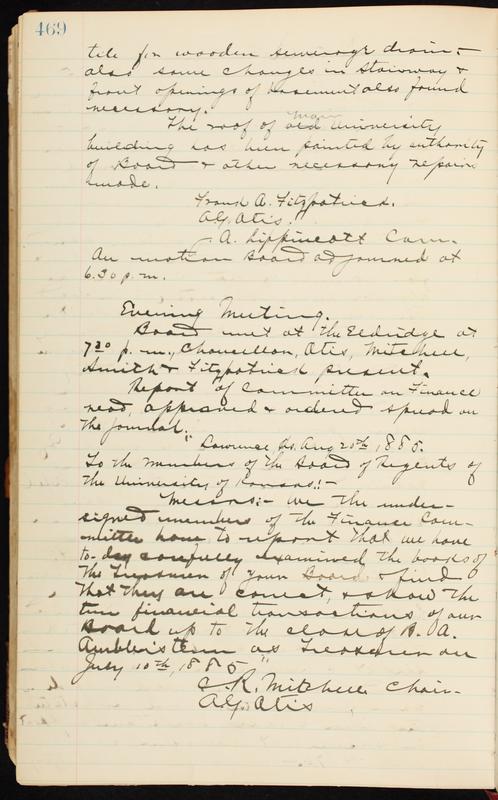 469
tile for wooden sewerage drain,-
also some changes in stairway &
front openings of basement also found
necessary.
main
The roof of old University
building has been painted by authority
of Board & other necessary repairs
made.
Frank A. Fitzpatrick.
A.G. Otis.
A. Lippincott Com.
On motion Board adjourned at
6.30 p.m.
Evening Meeting.
Board met at the Eldridge at
7 30 p.m., Chancellor, Otis, Mitchell,
Smith & Fitzpatrick present.
Report of Committee on Finance
read, approved & ordered spread on
the journal.
"Lawrence Ks. Aug 20th, 1885.
To the members of the Board of Regents of
the University of Kansas:-
Messrs:- We the under-
signed members of the Finance Com-
mittee have to report that we have
to-day carefully examined the books of
the Treasurer of your Board & find
that they are correct, & show the
true financial transactions of our
Board up to the close of B. A.
Ambler's term as Treasurer on
July 10th, 1885."
C.R. Mitchell Chair-
A.G. Otis